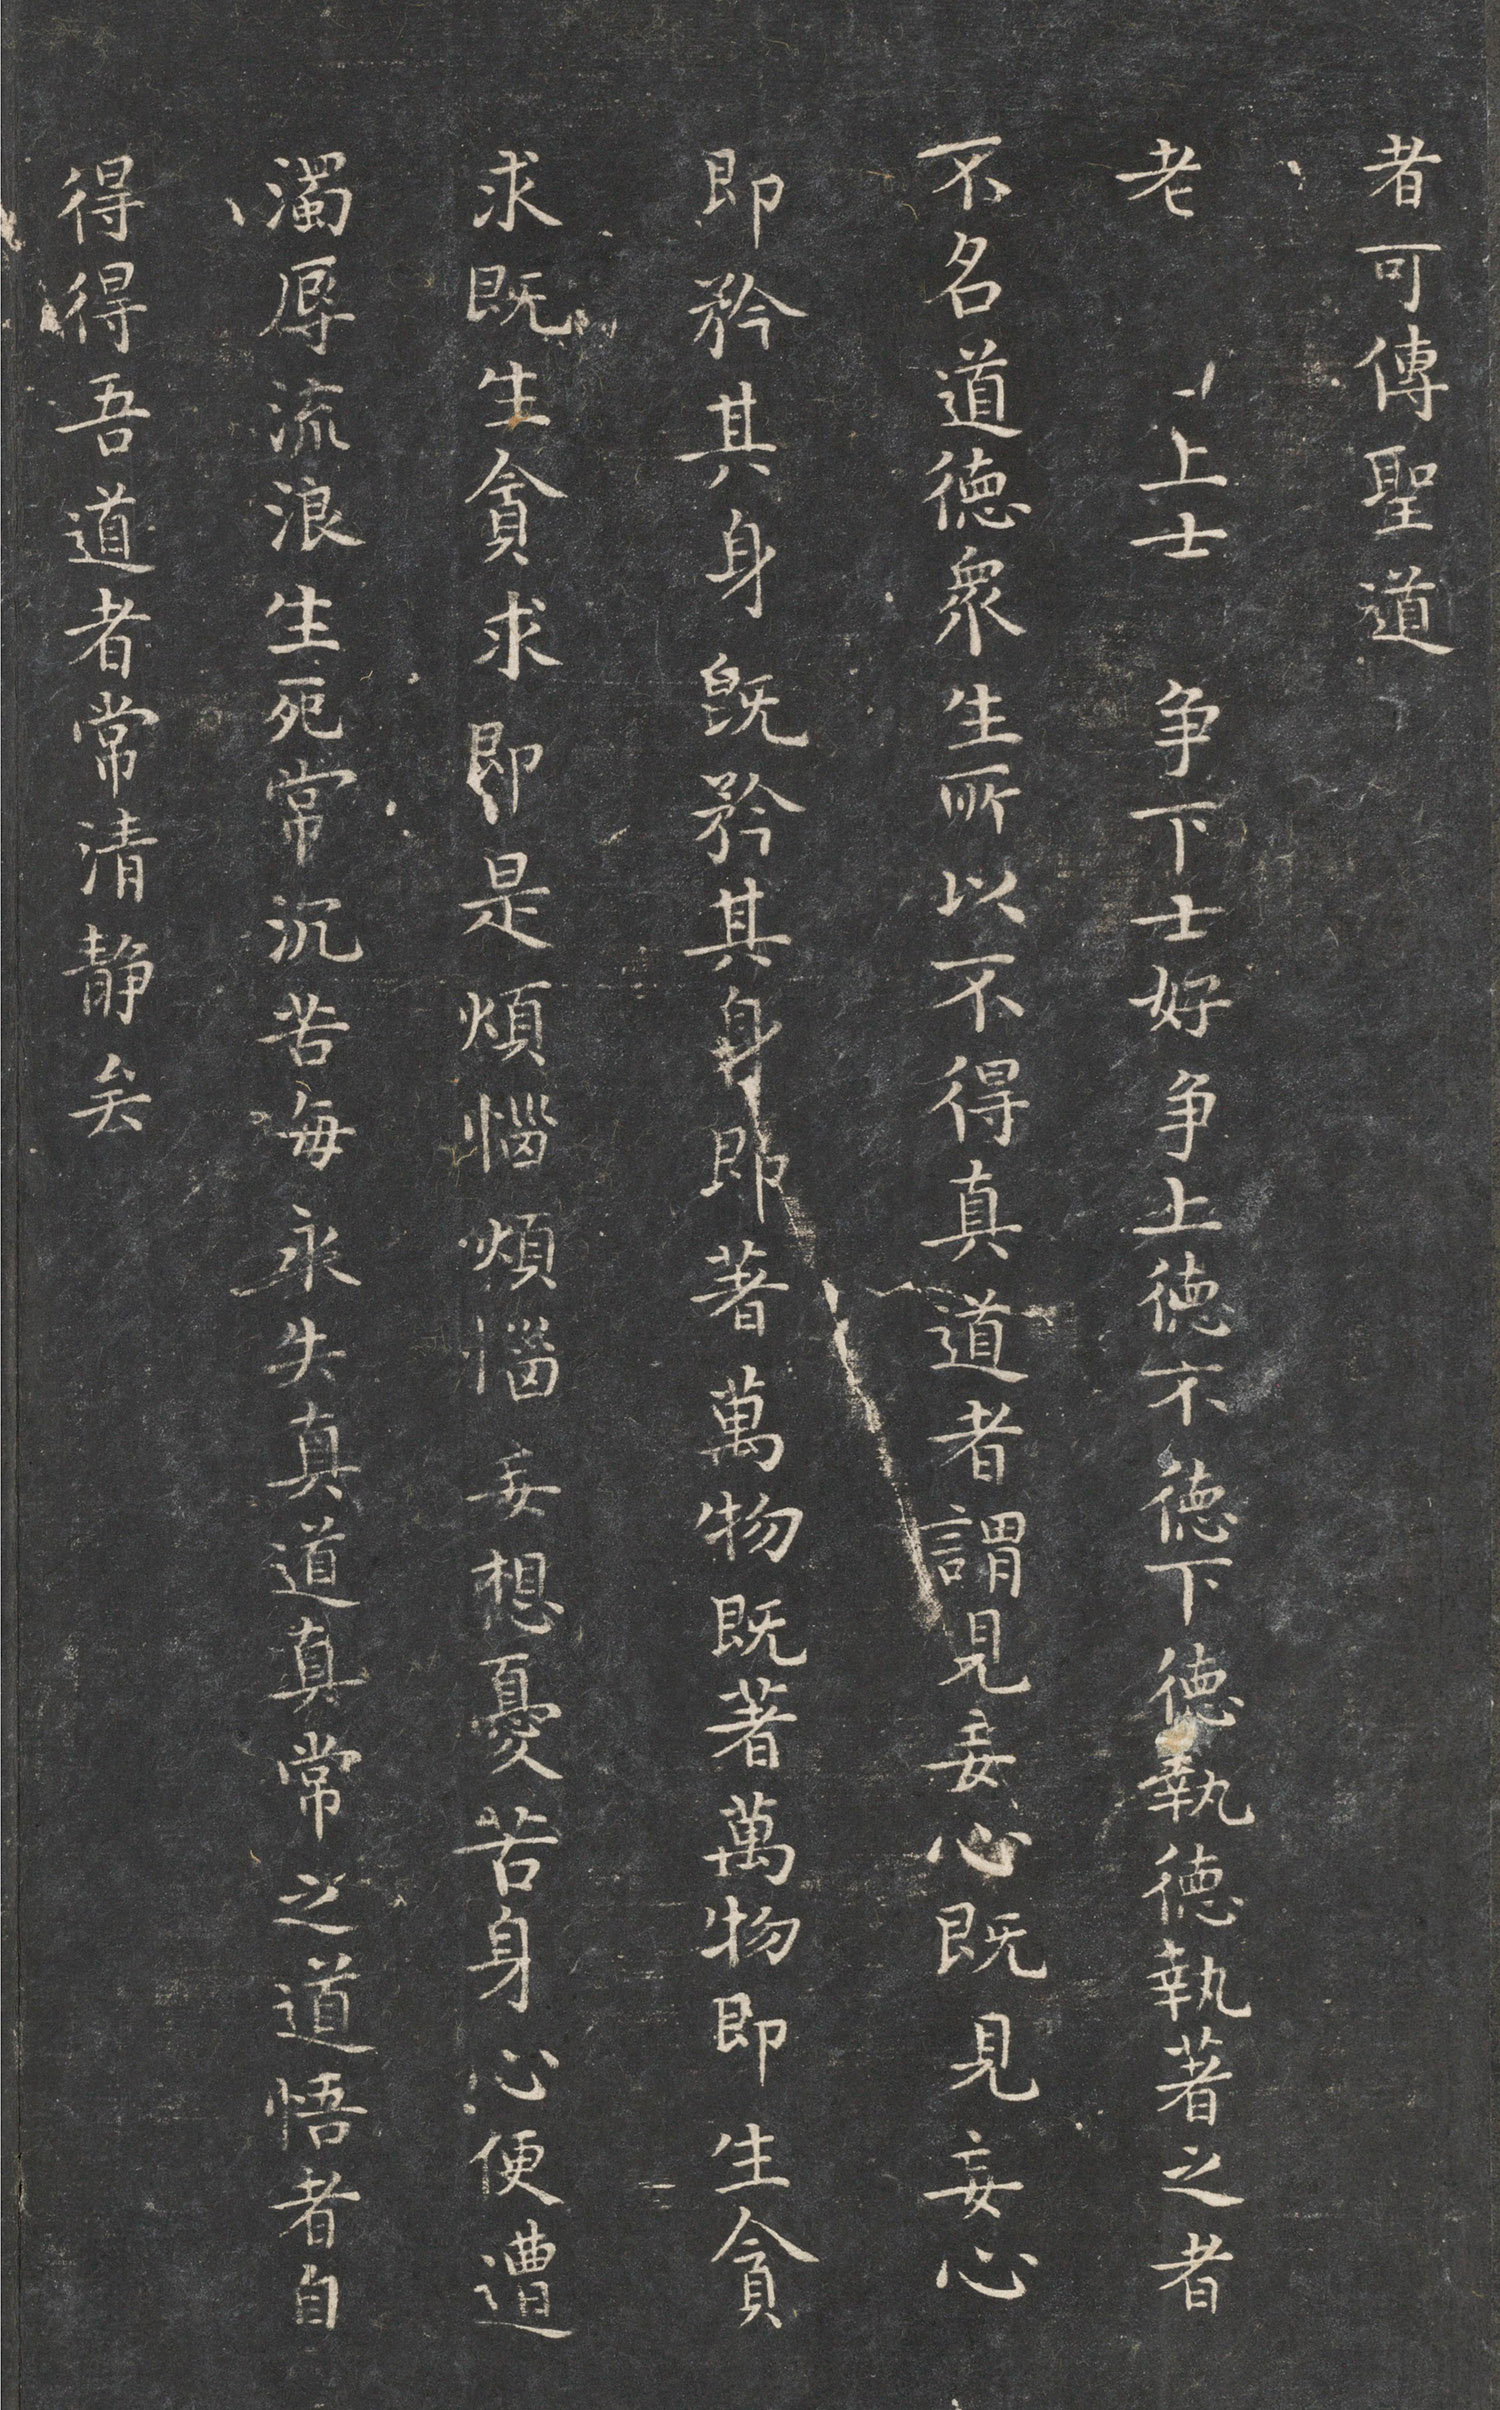 者可傳聖道
老 上士 争下士好争上德不德下德執德執著之者
不名道德衆生所以不得真道者謂見妄心既見妄心
即矜其身既矜其身即著萬物既著萬物即生貪
求既生貪求即是煩惱煩惱妄想憂苦身心便遭
濁辱流浪生死常沉苦海永失真道真常之道悟者自
得得吾道者常清静矣